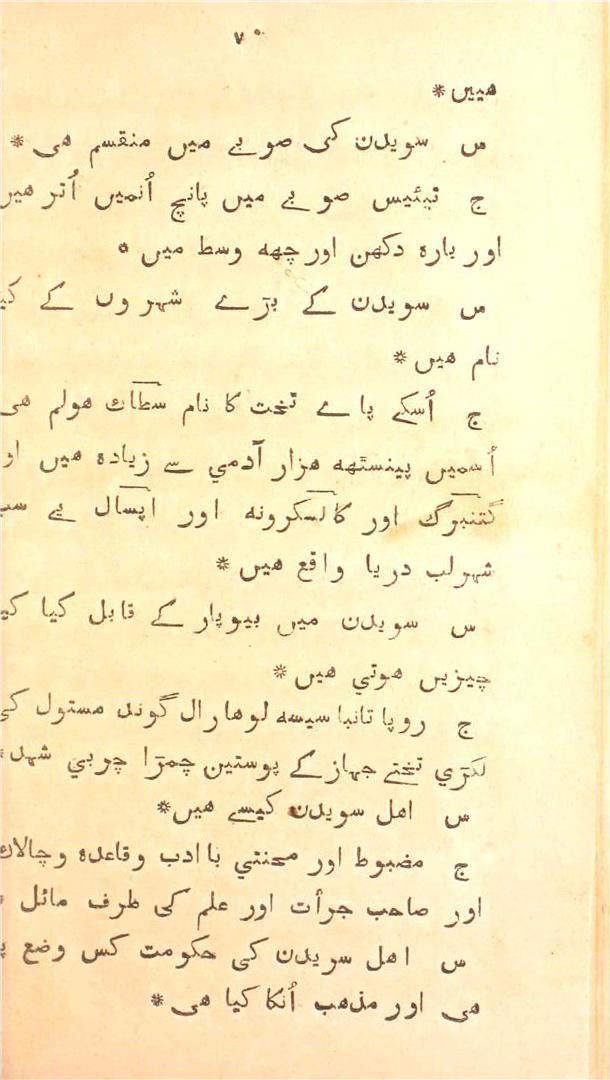 ۷۰
هییں *
س سویدن کی صوبے میں منقسم هی *
ج تیئیس صوبے میں پانچ اُنمیں اُتر هیں
اور بارہ دکهن اور چهه وسط میں *
س سویدن کے بڑے شہروں کے کیا
نام هیں *
ج اُسکے پاے تخت کا نام سطاک هولم هی
اُسمیں پینسٹهه هزار آدمي سے زیادہ هیں او
گتنبرگ اور کالسکرونه اور اپسال یے سب
شہر لب دریا واقع هیں *
س سویدن میں بیوپار کے قابل کیا کیا
چیزیں هوتي هیں *
ج روپا تانبا سیسه لوها رال گوند مستول کی
لکڑي تختے جہاز کے پوستین چمڑا چربي شهد *
س اهل سویدن کیسے هیں *
ج مضبوط اور محنتي با ادب و قاعدہ و چالاک
اور صاحب جرأت اور علم کی طرف مائل *
س اهل سریدن کی حکومت کس وضع پ
هی اور مذهب اُنکا کیا هی *